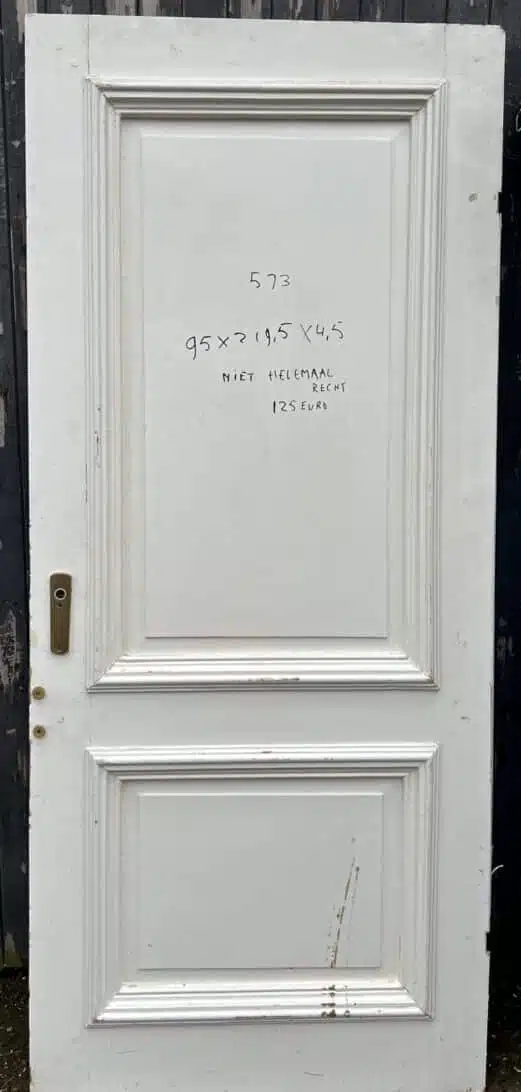 573
95x219,5x4,5
NIET HELEMAAL
RECHT
125 EURO